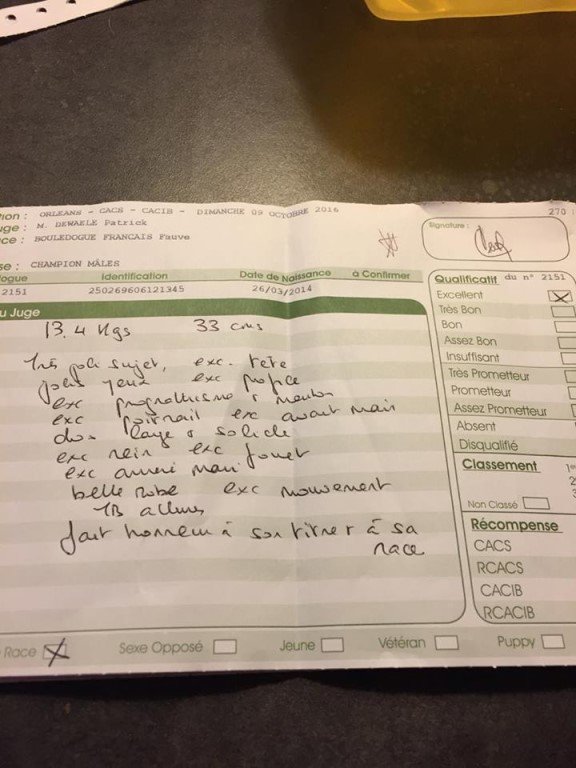 tion : ORLEANS - CACS - CACIB - DIMANCHE 09 OCTOBRE 2016
270
uge : M. DEWAELE Patrick
ce : BOULEDOGUE FRANCAIS Fauve
Signature :
se : CHAMPION MÂLES
logue Identification Date de Naissance à Confirmer
2151 250269606121345 26/03/2014
Qualificatif du n° 2151
Excellent
Très Bon
Bon
Assez Bon
Insuffisant
Très Prometteur
Prometteur
Assez Prometteur
Absent
Disqualifié
u Juge
13.4 Kgs 33 cms
Très joli sujet, exc. tête
jolis yeux exc
exc prognathisme & menton
exc poitrail exc avant main
dos large & solide
exc rein exc fouet
exc arrière main
belle robe exc mouvement
TB allures
fait honneur à son titre & à sa
race
Classement
1er
2
3
Non Classé
Récompense
CACS
RCACS
CACIB
RCACIB
Race Sexe Opposé Jeune Vétéran Puppy